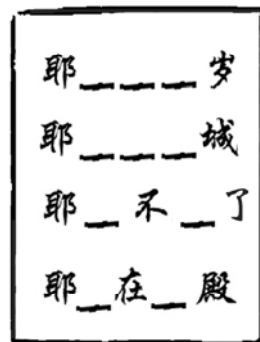 耶___岁
耶___城
耶_不_了
耶_在_殿